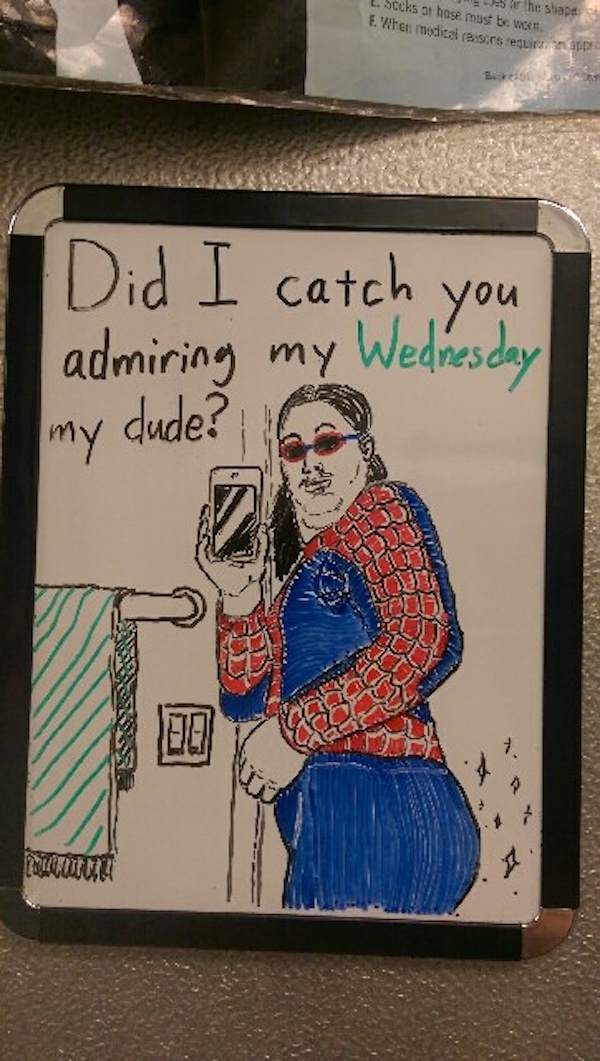 E. Socks or hose must be worn.
F. When medical reasons require
Did I catch you
admiring my Wednesday
my dude?